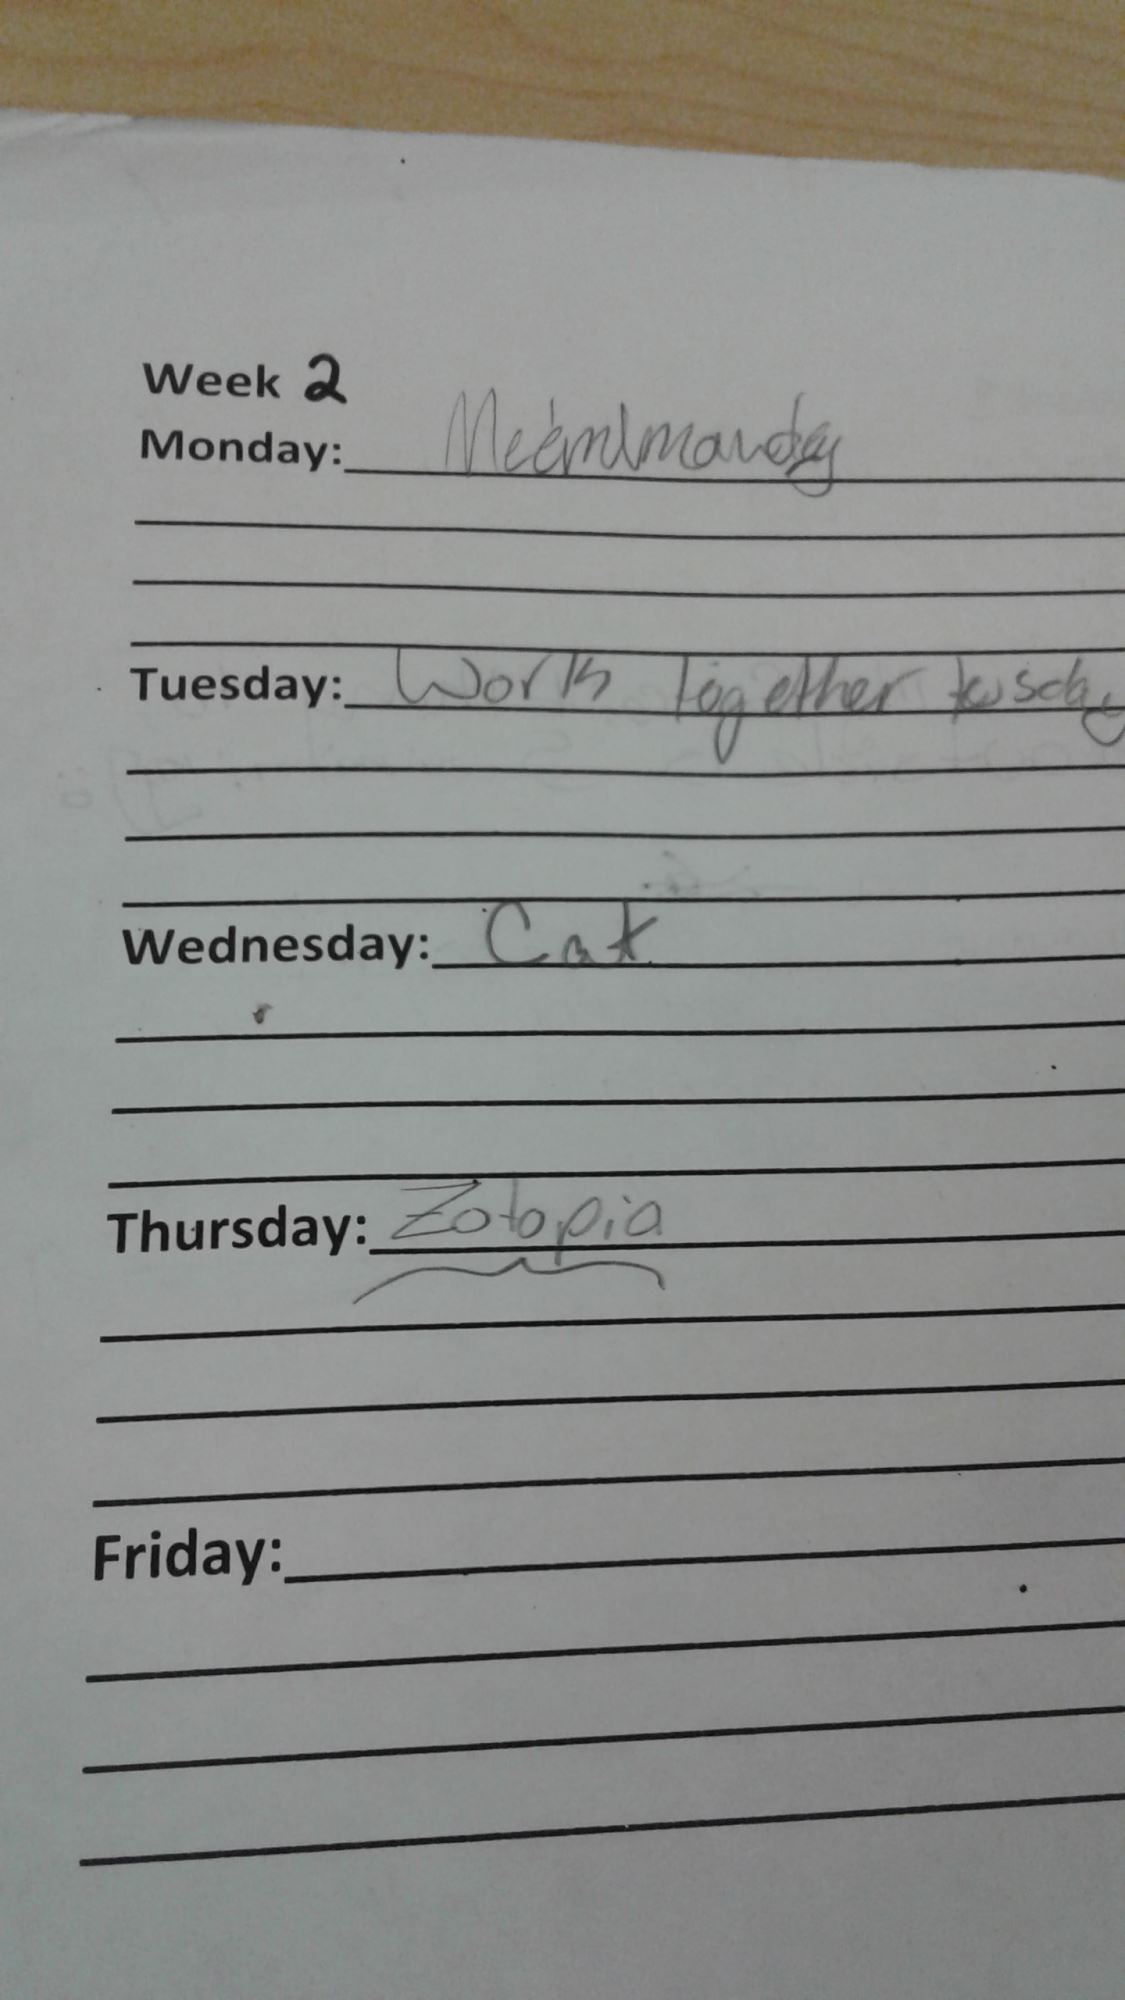 Week 2
Monday:
Tuesday: Work Together tusday
Wednesday: Cat
Thursday: Zotopia
Friday: